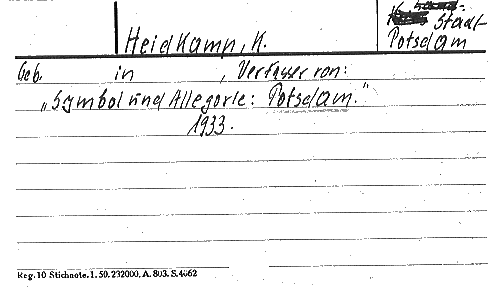 Stadt-
Heidkamp, K. Potsdam
Geb. in , Verfasser von:
„Symbol und Allegorie: Potsdam."
1933.
Reg. 10 Stichnote. 1. 50. 232000. A. 803. S. 4662